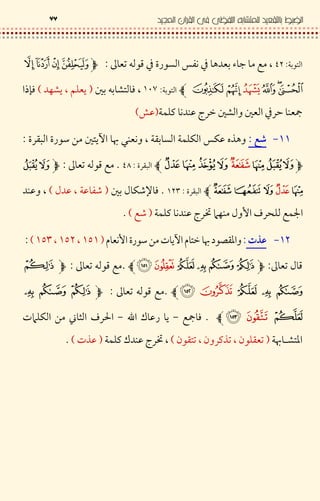 الضبط بالتقعيد للمتشابه اللفظي في القرآن المجيد
٦٦
التوبة: ٤٢ ، مع ما جاء بعدها في نفس السورة في قوله تعالى : ﴿ وَلَيَحْلِفُنَّ إِنْ أَرَدْنَآ إِلَّا
ٱلْحُسْنَىٰ وَٱللَّهُ يَشْهَدُ إِنَّهُمْ لَكَٰذِبُونَ ﴾ التوبة: ١٠٧ ، فالتشابه بين ( يعلم ، يشهد ) فإذا
جمعنا حرفي العين والشين خرج عندنا كلمة(عش)
١١- شع : وهذه عكس الكلمة السابقة ، ونعني بها الآيتين من سورة البقرة :
﴿ وَلَا يُقْبَلُ مِنْهَا شَفَٰعَةٌ وَلَا يُؤْخَذُ مِنْهَا عَدْلٌ ﴾ البقرة : ٤٨ . مع قوله تعالى : ﴿ وَلَا يُقْبَلُ
مِنْهَا عَدْلٌ وَلَا تَنفَعُهَا شَفَٰعَةٌ ﴾ البقرة : ١٢٣ . فالإشكال بين ( شفاعة ، عدل ) ، وعند
الجمع للحرف الأول منهما تخرج عندنا كلمة ( شع ) .
١٢- عذت : والمقصود بها ختام الآيات من سورة الأنعام ( ١٥١ ، ١٥٢ ، ١٥٣ ) :
قال تعالى: ﴿ ذَٰلِكُمْ وَصَّىٰكُم بِهِۦ لَعَلَّكُمْ تَعْقِلُونَ ١٥١ ﴾ .مع قوله تعالى : ﴿ ذَٰلِكُمْ
وَصَّىٰكُم بِهِۦ لَعَلَّكُمْ تَذَكَّرُونَ ١٥٢ ﴾ .مع قوله تعالى : ﴿ ذَٰلِكُمْ وَصَّىٰكُم بِهِۦ
لَعَلَّكُمْ تَتَّقُونَ ١٥٣ ﴾ . فاجمع - يا رعاك الله - الحرف الثاني من الكلمات
المتشابهة ( تعقلون ، تذكرون ، تتقون ) ، تخرج عندك كلمة ( عذت ) .